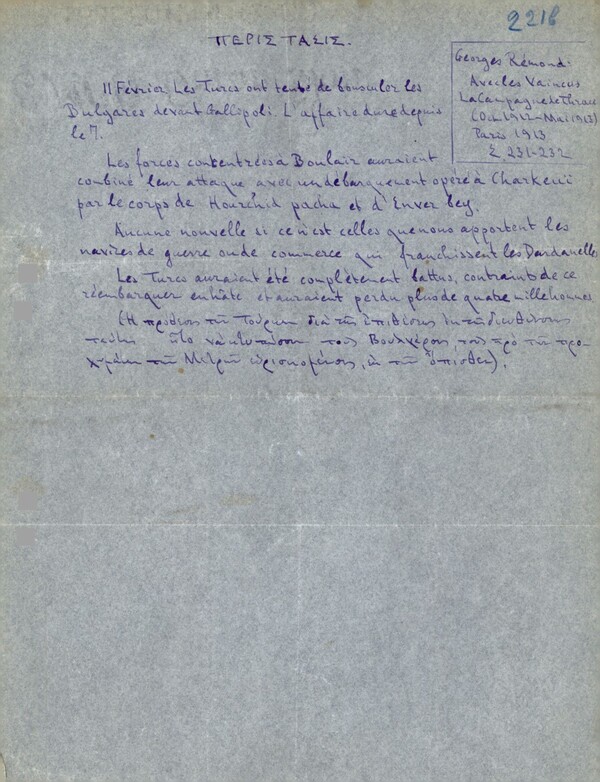 2218
ΠΕΡΙΣΤΑΣΙΣ.
Georges Rémond:
Avec les Vaincus
La Campagne de Thrace
(Oct 1912-Mai 1913)
Paris 1913
Σ 231-232
11 Février Les Turcs ont tenté de bousculer les
Bulgares devant Gallipoli. L'affaire dure depuis
le 7.
Les forces concentrées à Boulair auraient
combiné leur attaque avec un débarquement opéré à Charkeuï
par le corps de Hourchid pacha et d'Enver bey.
Aucune nouvelle si ce n'est celles que nous apportent les
navires de guerre ou de commerce qui franchissent les Dardanelles
Les Turcs auraient été complètement battus, contraints de ce
réembarquer en hâte et auraient perdu plus de quatre mille hommes
(Η πρόθεσις τῶν Τούρκων διὰ τῆς ἐπιθέσεως ἐκ τῆς διευθύνσεως
ταύτης ἦτο νὰ κτυπήσουν τοὺς Βουλγάρους τοὺς πρὸ τῆς
εὑρισκομένους, ἐκ τῶν ὄπισθεν).